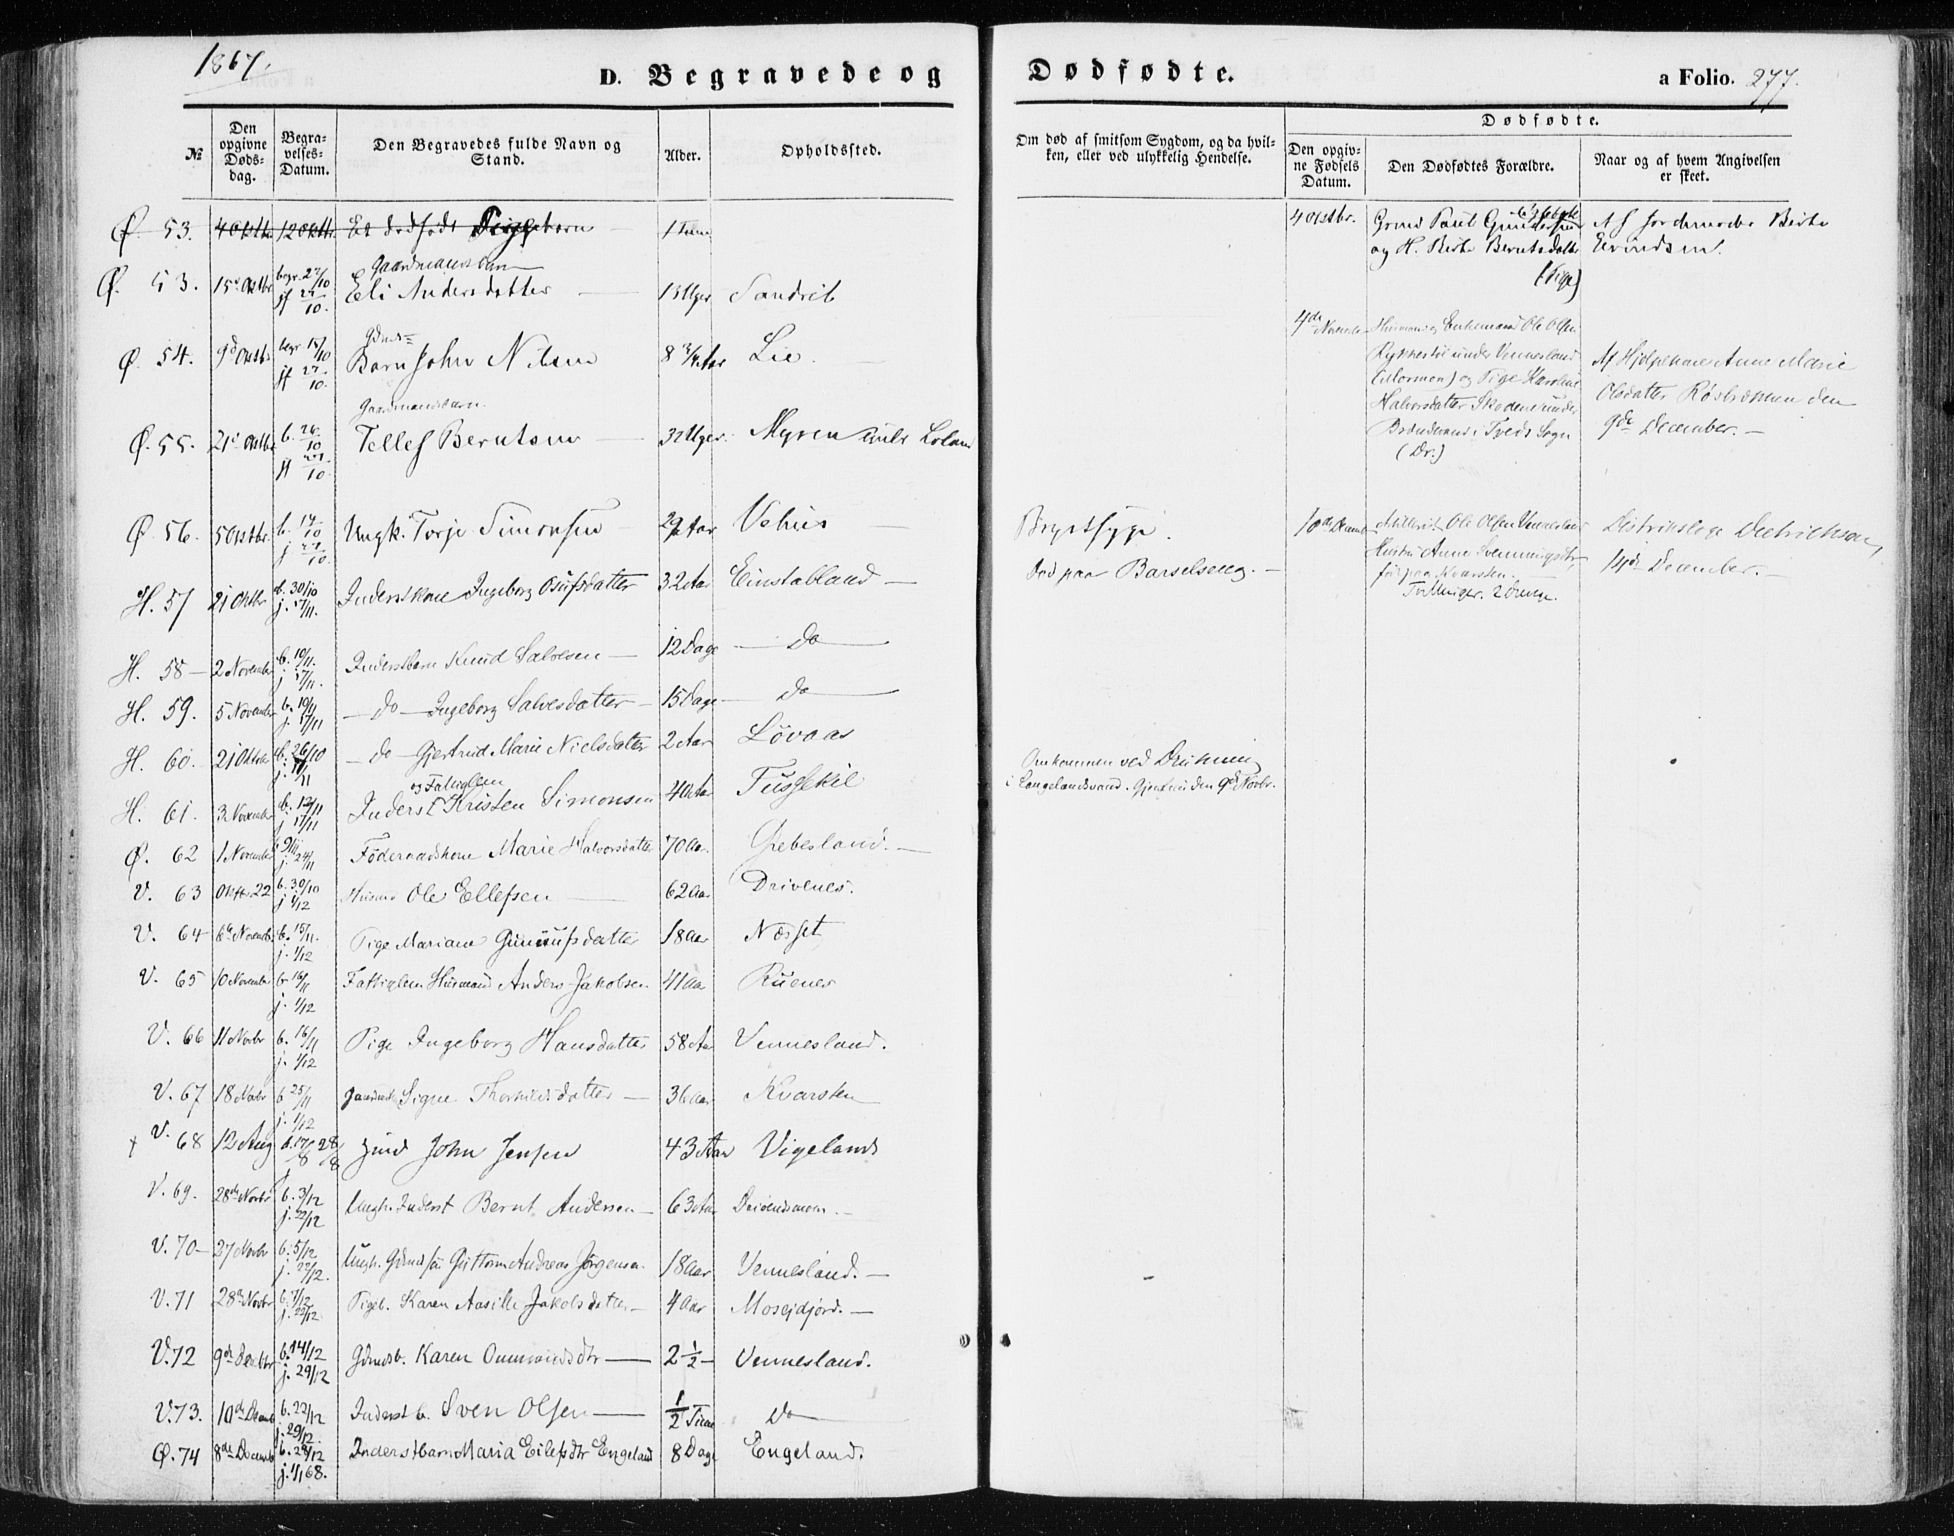 1867.
D. Begravede og
Dødfødte.
a Folio. 277.
№
Den opgivne Døds-dag.
Begra-velses-Datum.
Den Begravedes fulde Navn og Stand.
Alder.
Opholdssted.
Om død af smitsom Sygdom, og da hvil-
ken, eller ved ulykkelig Hendelse.
Dødfødte.
Den opgiv-ne Fødsels Datum.
Den Dødfødtes Forældre.
Naar og af hvem Angivelsen er skeet.
Ø. 53. 4 Oktbr. 12 Oktbr. Et dødfødt Pigebarn 1 Time
Gaardmandsbarn
Ø. 53. 15de Oktbr begr. 27/10 jf 27/10. Eli Andersdatter 13 Uger Sandrib
Gdmds
Ø. 54. 9d Oktb begr 15/10 jf 27/10. Barn John Nilsen 8 3/4 Aar Lie.
Gaardmandsbarn.
Ø. 55. 21d Oktbr b. 26/10 jf 27/10. Tellef Berntsen 32 Uger. Myren under Loland
Ø. 56. 5 Oktbr. b. 14/10 j 27/10. Ungk. Torje Simonsen 29 Aar Vehus
H. 57 21 Oktbr b. 30/10 j. 17/11. Inderstkone Ingeborg Osufsdatter 32 Aar Einstabland
H. 58 2 November b. 10/11. j 17/11. Inderstbarn Knud Salvesen 12 Dage Do
H. 59. 5 November b. 10/11 j. 17/11 do Ingeborg Salvesdatter 15 Dage Do
H. 60. 21 Oktober b. 26/10 j. 17/11 do Gjertrud Marie Nielsdatter 2 Aar Løvaas
og Fatiglem
H. 61. 3 November b. 12/11 j 17/11 Inderst Kristen Simonsen 40 Aar Tusskil
Ø. 62 1 November 9/11 j. 24/11 Föderaadskone Marie Halvorsdatter 70 Aar Grebesland.
V. 63 Oktbr. 22 b. 30/10 j 1/12 Husmd Ole Ellefsen 62 Aar Drivenes.
V. 64 6te November b. 15/11. j. 1/12 Pige Mariane Gunuufsdatter 18 Aar Næsset
V. 65 10 November b. 16/11 j. 1/12 Fattiglem Husmand Anders Jakobsen 41 Aar Ruenes
V. 66 11 Novbr b. 16/11 j. 1/12 Pige Ingeborg Hansdatter 58 Aar Vennesland.
V. 67 18 Novbr b 25/11 j. 1/12 Signe Thorkildsdatter 36 Aar Kvarsten
+ V. 68 12 Aug b. 17/8 28/8 Gmd John Jensen 43 Aar Vigeland
V. 69. 28de Novbr b. 3/12 j. 22/12 Ungk. Inderst Bernt Andersen 63 Aar Drivenesmoen.
V. 70 27 Novbr b. 5/12 j. 22/12. Ungk. Gdmdsøn Guttorm Andreas Jørgensen 18 Aar Vennesland.
V. 71 28de Novbr b. 7/12 j. 22/12. Pigeb. Karen Aasille Jakobsdatter 4 Aar Moseidjord.
V. 72 9de Decbr b. 14/12 j. 29/12 Gdmdsb. Karen Ommundsdtr 2 1/2 Vennesland.
V. 73. 10de Decemb b. 22/12 j. 29/12. Inderst b. Sven Olsen 1/2 Time Do
Ø. 74 8de Decemb b. 28/12 j. 1/1 68. Inderstbarn Maria Eilefsdtr Engeland 8 Dage Engeland.
4 Oktbr. Grmd Paul Gundersen
og H. Berte Berntsdatter
(Pige)
Af Jordmoder Berte
Eivindsen.
4de November Husmand og Enkemand Ole Olsen
under Vennesland
(Mormon) og Pige Karoline
Halvorsdatter Skodene under
i Tveds Sogn
(Dr.)
Af Hjelpekone Anne Marie
Olsdatter den
9de December.
Brystsyge.
Død paa Barselseng.
10de Decemb Ole Olsen Vennesland
Hustru Anne Svenningsdtr,
født paa Kvarsten.
Tvillinger. 2 Drenge.
Distriktslæge Diedrichson,
14de December.
Omkommen ved Drukning
i Langelandsvand. Gjenfunden 9de Novbr.